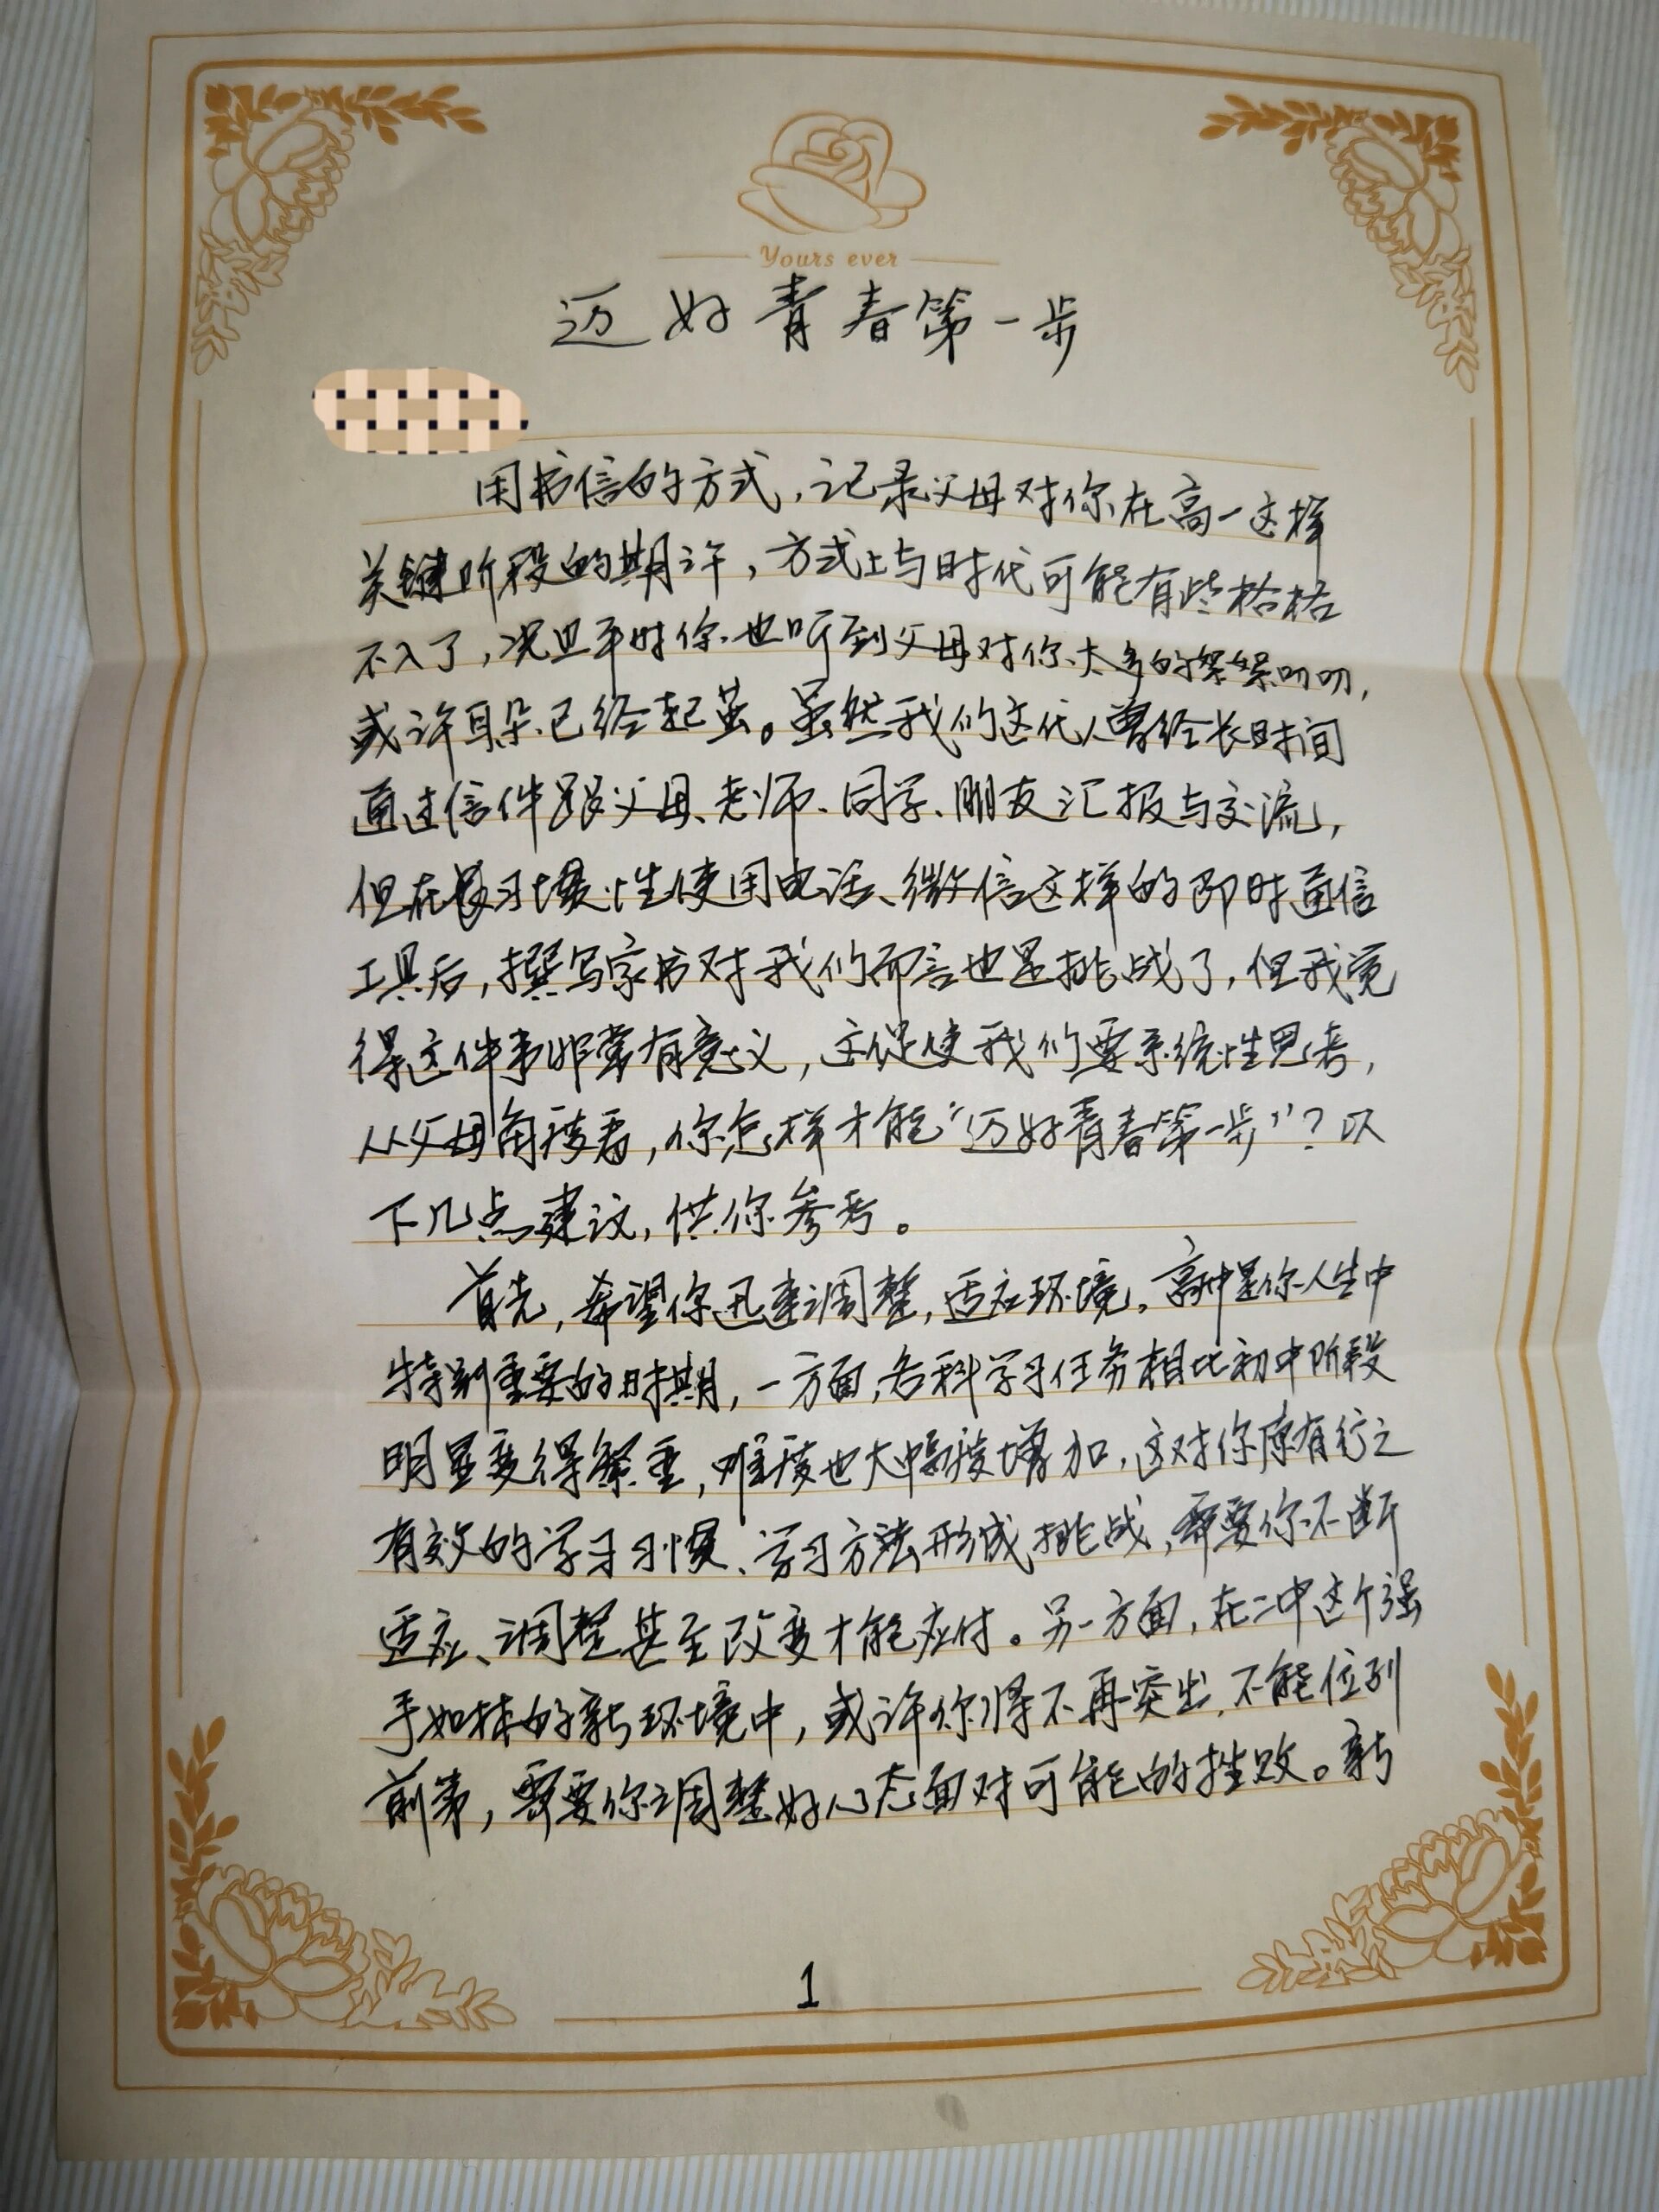 Yours ever
迈好青春第一步
用书信的方式，记录父母对你在高一这样
关键阶段的期许，方式上与时代可能有些格格
不入了，况且平时你也听到父母对你太多的絮絮叨叨，
或许耳朵已经起茧。虽然我们这代人曾经长时间
通过信件跟父母、老师、同学、朋友汇报与交流，
但在习惯性使用电话、微信这样的即时通信
工具后，撰写家书对我们而言也是挑战了，但我觉
得这件事非常有意义，这促使我们要系统性思考，
从父母角度看，你怎样才能“迈好青春第一步”？以
下几点建议，供你参考。
首先，希望你迅速调整，适应环境。高中是你人生中
特别重要的时期，一方面，各科学习任务相比初中阶段
明显变得繁重，难度也大幅度增加，这对你原有行之
有效的学习习惯、学习方法形成挑战，需要你不断
适应、调整甚至改变才能应付。另一方面，在二中这个强
手如林的新环境中，或许你将不再突出，不能位列
前茅，需要你调整好心态面对可能的挫败。新
1